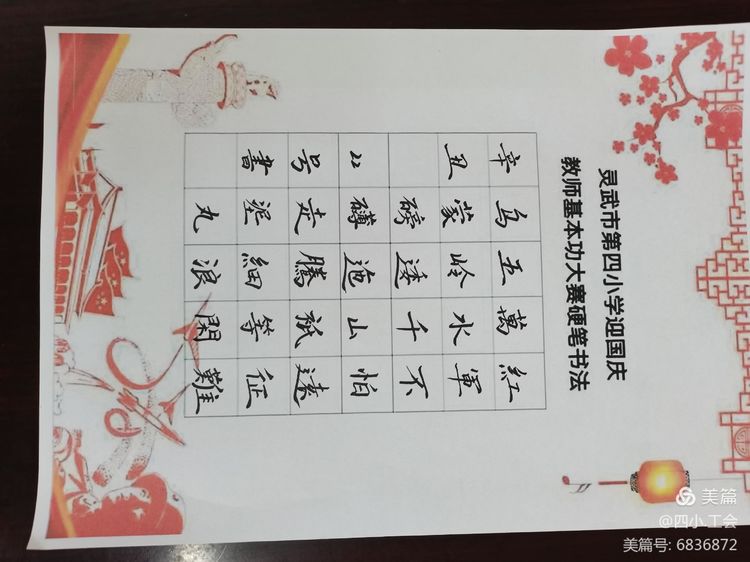 灵武市第四小学迎国庆
教师基本功大赛硬笔书法
紅軍不怕遠征難
萬水千山祇等閑
五岭逶迤騰細浪
乌蒙磅礴走泥丸
辛丑 号書
美篇
@四小.工会
美篇号: 6836872